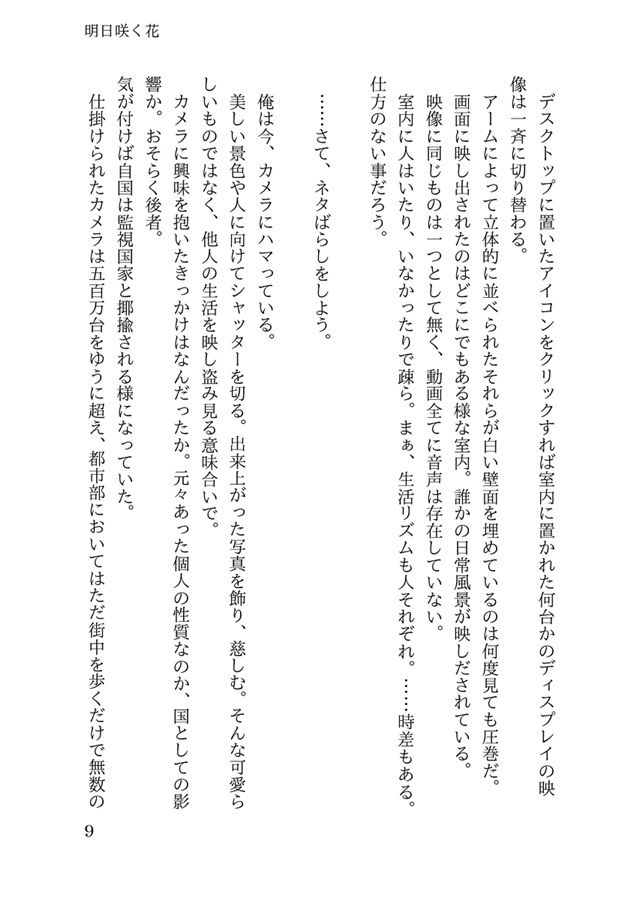 明日咲く花
デスクトップに置いたアイコンをクリックすれば室内に置かれた何台かのディスプレイの映
像は一斉に切り替わる。
アームによって立体的に並べられたそれらが白い壁面を埋めているのは何度見ても圧巻だ。
画面に映し出されたのはどこにでもある様な室内。誰かの日常風景が映しだされている。
映像に同じものは一つとして無く、動画全てに音声は存在していない。
室内に人はいたり、いなかったりで疎ら。まぁ、生活リズムも人それぞれ。……時差もある。
仕方のない事だろう。
……さて、ネタばらしをしよう。
俺は今、カメラにハマっている。
美しい景色や人に向けてシャッターを切る。出来上がった写真を飾り、慈しむ。そんな可愛ら
しいものではなく、他人の生活を映し盗み見る意味合いで。
カメラに興味を抱いたきっかけはなんだったか。元々あった個人の性質なのか、国としての影
響か。おそらく後者。
気が付けば自国は監視国家と揶揄される様になっていた。
仕掛けられたカメラは五百万台をゆうに超え、都市部においてはただ街中を歩くだけで無数の
9